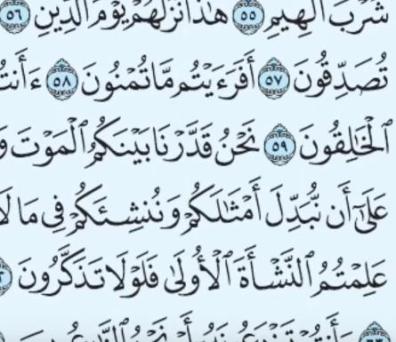 شُرْبَ ٱلْهِيمِ ٥٥ هَٰذَا نُزُلُهُمْ يَوْمَ ٱلدِّينِ ٥٦
تُصَدِّقُونَ ٥٧ أَفَرَءَيْتُم مَّا تُمْنُونَ ٥٨ ءَأَنتُ
ٱلْخَٰلِقُونَ ٥٩ نَحْنُ قَدَّرْنَا بَيْنَكُمُ ٱلْمَوْتَ وَ
عَلَىٰٓ أَن نُّبَدِّلَ أَمْثَٰلَكُمْ وَنُنشِئَكُمْ فِى مَا لَا
عَلِمْتُمُ ٱلنَّشْأَةَ ٱلْأُولَىٰ فَلَوْلَا تَذَكَّرُونَ